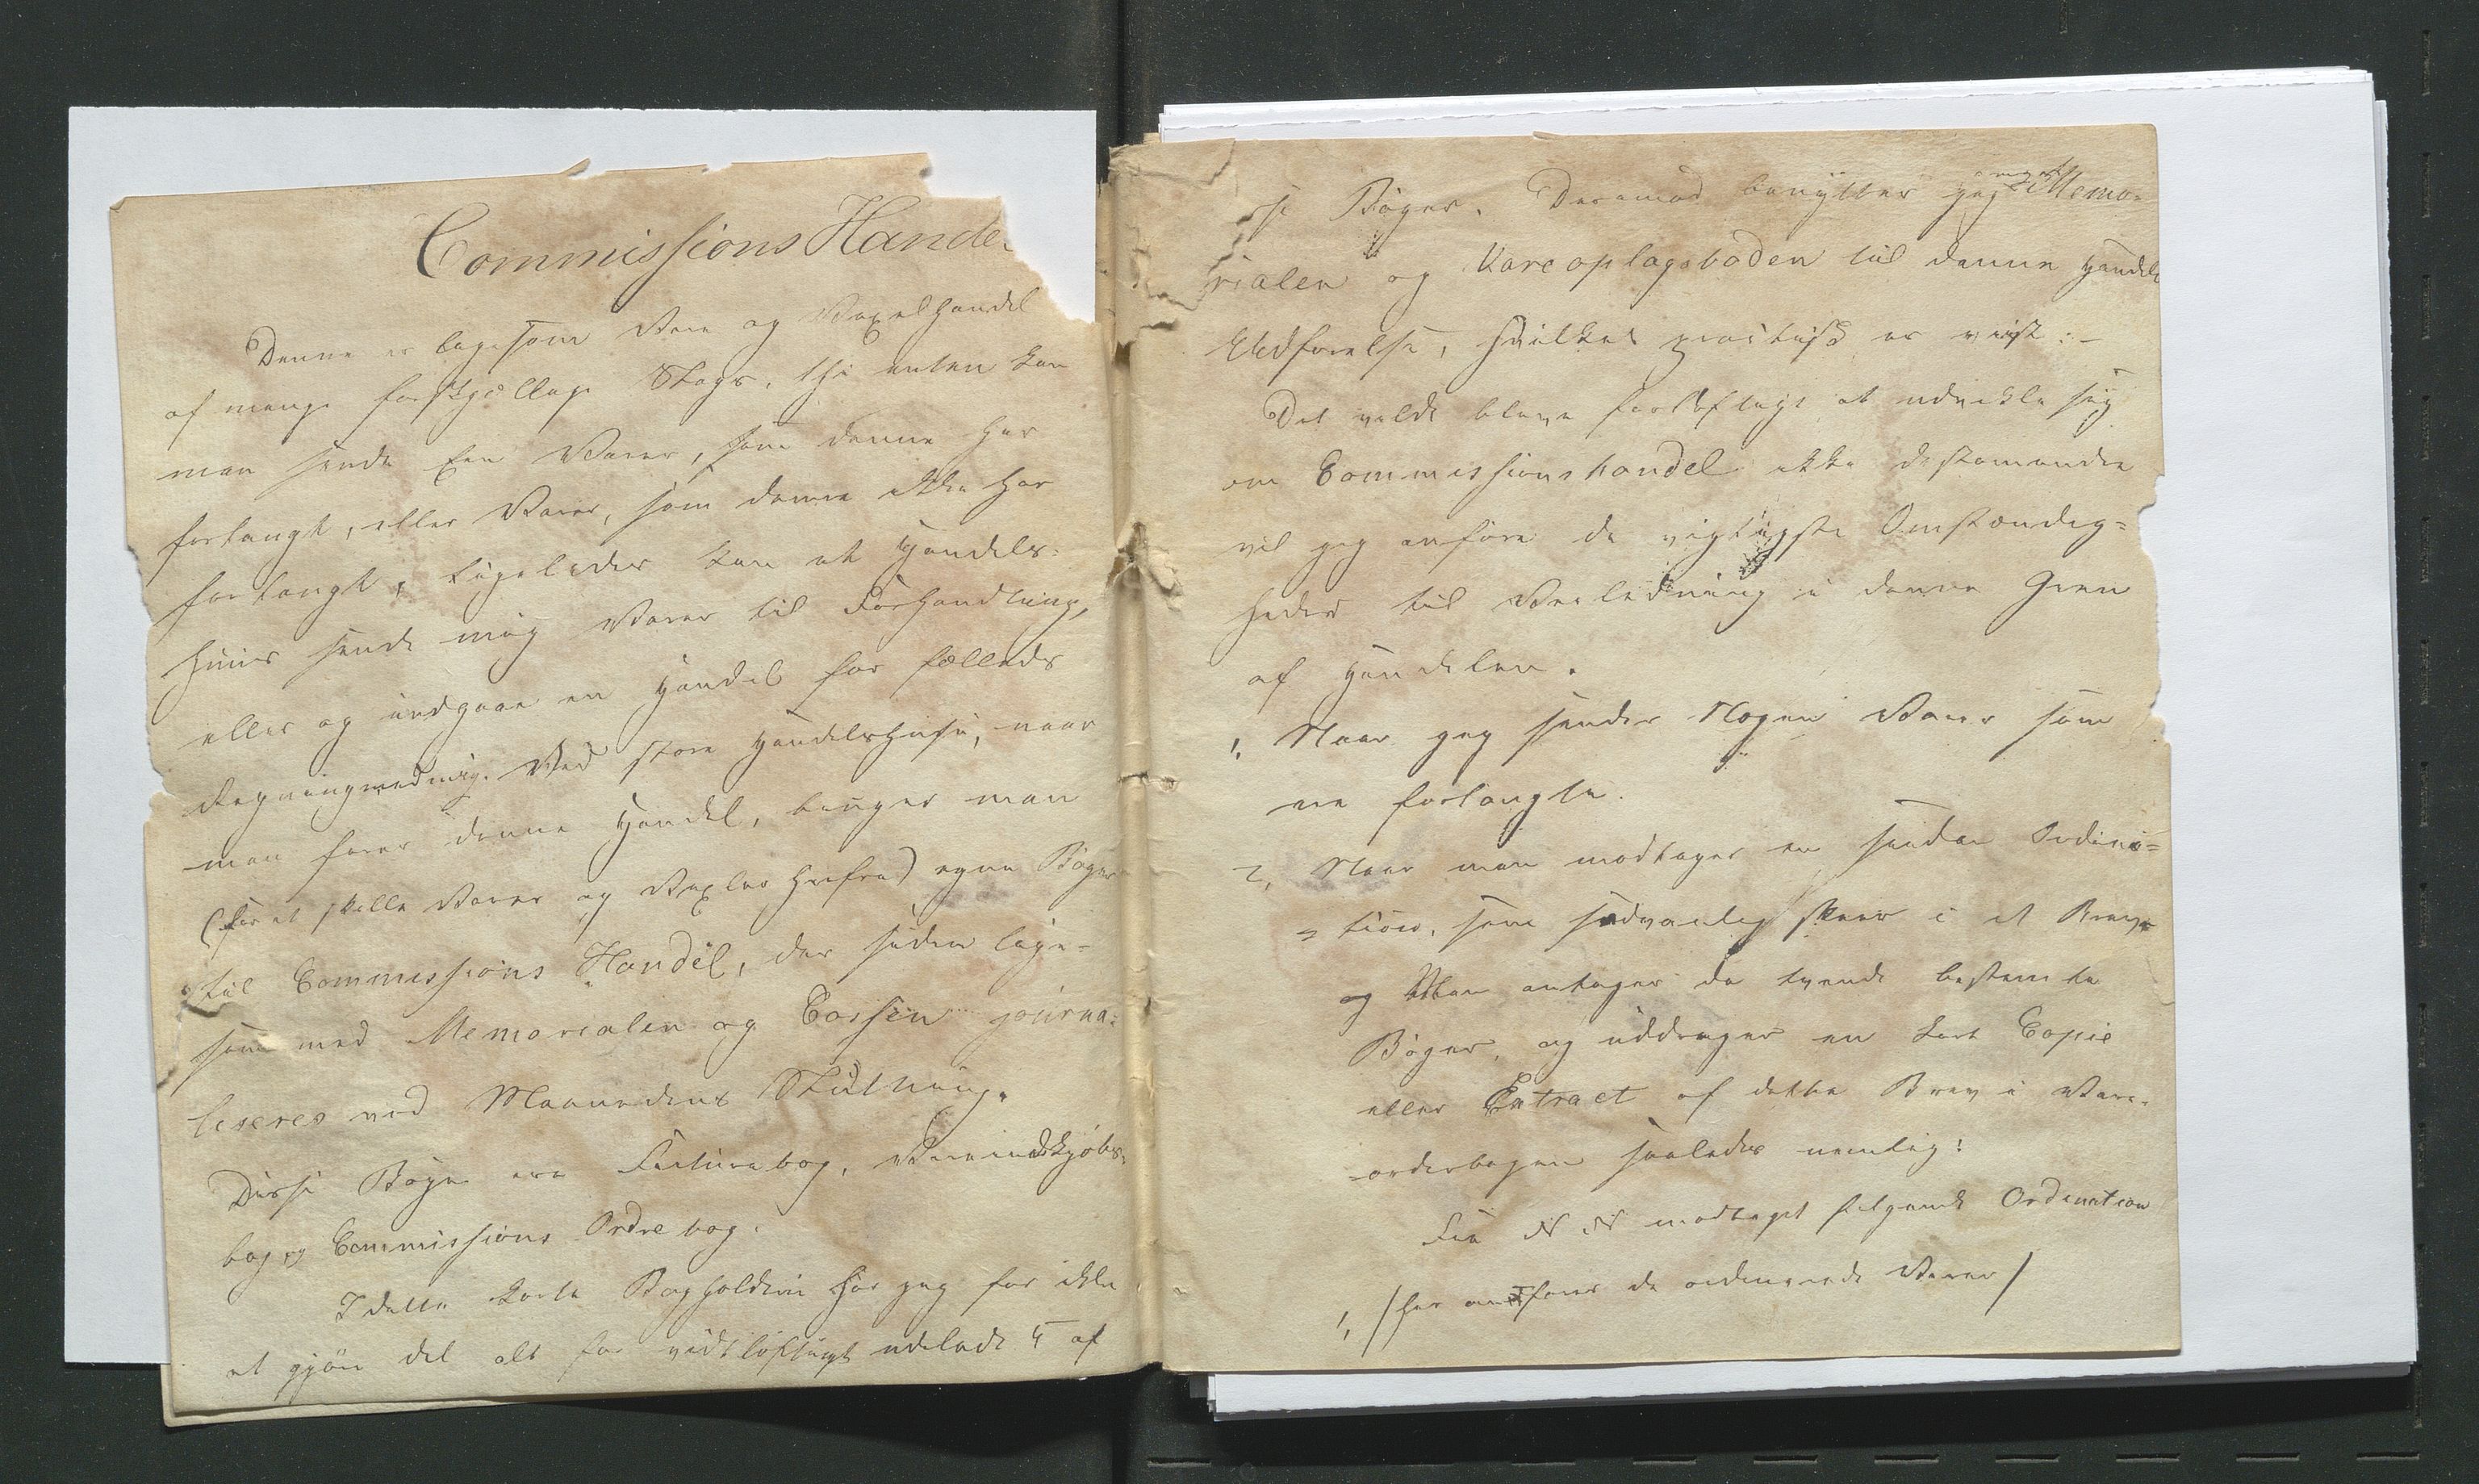 Commissions Hande
Denne er ligesom Vare og Vexelhandel
af mange forskjællige Slags, thi enten kan
man sende Een Varer, som denne har
forlangt, eller Varer, som denne ikke har
forlangt, ligeledes kan et Handels-
huus sende mig Varer til Forhandling,
eller og indgaae en Handel for fælleds
Regning med mig. Ved store Handelshuse, naar
man fører denne Handel, bruger man
(for at skille Varer og Vexler herfra) egne Bøger
til Commissions Handel, der siden lige-
som med Memorialen og Cassen journa-
liseres ved Maanedens Slutning.
Disse Bøger ere Facturabog, Vareindkjøbs-
bog og Commissions Ordrebog.
I dette korte Bogholderi har jeg for ikke
at gjøre det alt for vidtløftigt udeladt 4 af
se Bøger. Deremod benytter jeg Memo-
rialen og Vareoplagsboden til denne Handels
Udførelse, hvilket practisk er viist:-
Det vilde blive vidtløftigt at udvikle sig
om Commissionshandel ikke destomindre
vil jeg anføre de vigtigste Omstændig-
heder til Veiledning i denne Green
af Handelen.
1, Naar jeg sender Nogen Varer som
ere forlangte.
2, Naar man modtager en saadan Ordina-
tion, som sædvanlig skeer i et Brev
og Man antager de tvende bestemte
Bøger, og uddrager en kort Copie
eller Extract af dette Brev i Vare-
ordrebogen saaledes nemlig:
Fra N N modtaget følgende Ordination
1, /her anføres de ordinerede Varer/